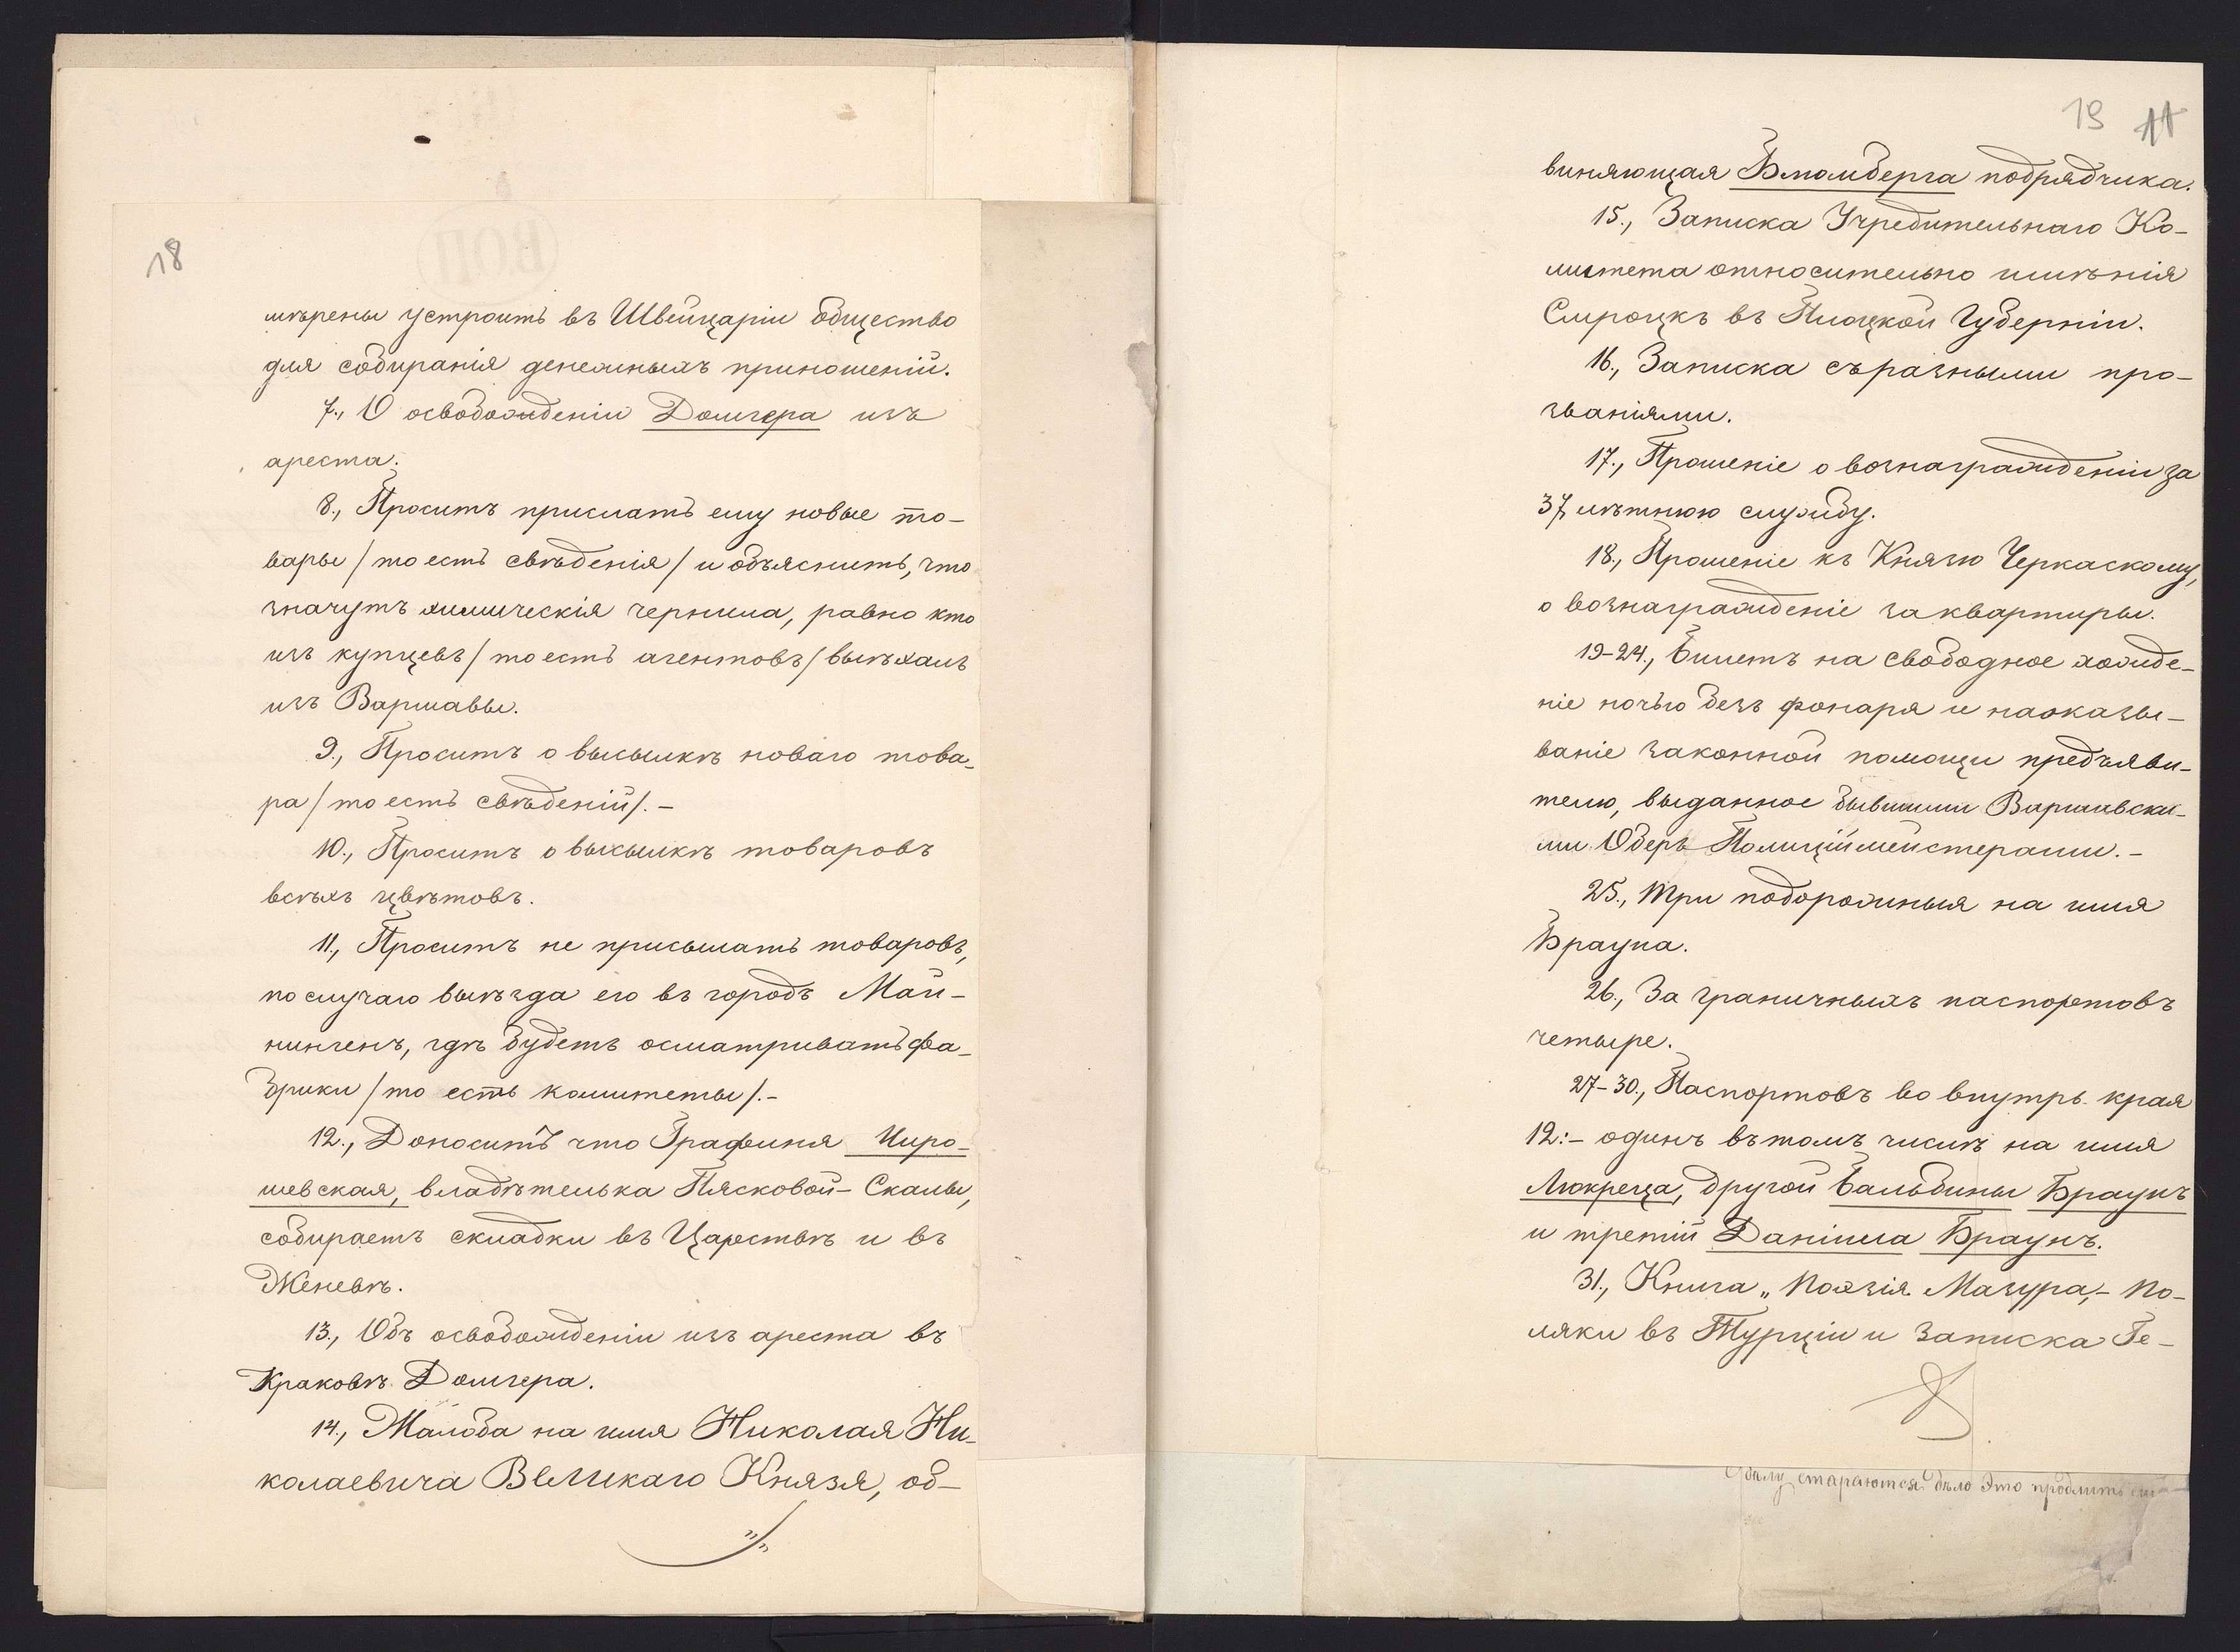 18
мѣрены устроить въ Швейцаріи общество
для собиранія денежныхъ приношеній.
7., О освобожденіи Домгера изъ
ареста.
8., Проситъ прислать ему новые то-
вары / то есть свѣденія / и объяснить, что
значутъ химическія чернила, равно кто
изъ купцевъ / то есть агентовъ / выѣхалъ
изъ Варшавы.
9., Проситъ о высылкѣ новаго това-
ра / то есть свѣденій /. –
10., Проситъ о высылкѣ товаровъ
всѣхъ цвѣтовъ.
11., Проситъ не присылать товаровъ,
по случаю выѣзда его въ городъ Май-
нингенъ, гдѣ будетъ осматривать фа-
брики / то есть комитеты /. –
12., Доноситъ что Графиня Миро-
шевская, владѣтелька Пясковой – Скалы,
собираетъ складки въ Царствѣ и въ
Женевѣ.
13., Объ освобожденіи изъ ареста въ
Краковѣ Домгера.
14., Жалоба на имя Николая Ни-
колаевича Великаго Князя, об-
19 11
виняющая Бломберга подрядчика.
15., Записка Учредительнаго Ко-
митета относительно имѣнія
Смроцкъ въ Плоцкой Губерніи.
16., Записка съ разными про-
званіями.
17., Прошеніе о вознагражденіи за
37 лѣтнюю службу.
18., Прошеніе къ Князю Черкаскому,
о вознагражденіе за квартиры.
19–24., Билетъ на свободное хожде-
ніе ночью безъ фонаря и наоказы-
ваніе законной помощи предъяви-
телю, выданное бывшими Варшавски-
ми Оберъ Полиціймейстерами. –
25., Три подорожныя на имя
Брауна.
26., За граничныхъ паспортовъ
четыре.
27–30., Паспортовъ во внутрь края
12: – одинъ въ томъ числѣ на имя
Люкреца, другой Бальбины Браунъ
и третій Даніила Браунъ.
31., Книга „ Поэзія Мазура, – По-
ляки въ Турціи и Записка Ге-
стараются дѣло это продлить